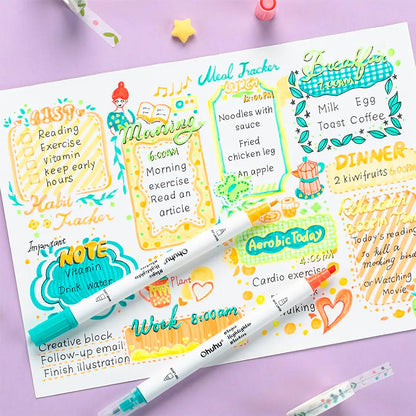 Meal Tracker
Breakfast
LIST
Reading
Exercise
Vitamin
Keep early
hours
Habit
Tracker
Morning
6:00AM
Morning
exercise
Read an
article
12:00PM
Noodles with
sauce
Fried
chicken leg
An apple
Milk Egg
Toast Coffee
DINNER
2 kiwifruits
Important
NOTE
Vitamin
Drink Water
Plant
Aerobic Today
4:00PM
Cardio exercise
Walking
Today's reading
To kill a
mocking bird
or Watching
Movie
Work 8:00am
Creative block
Follow-up email
Finish illustration
Ohuhu
Ohuhu